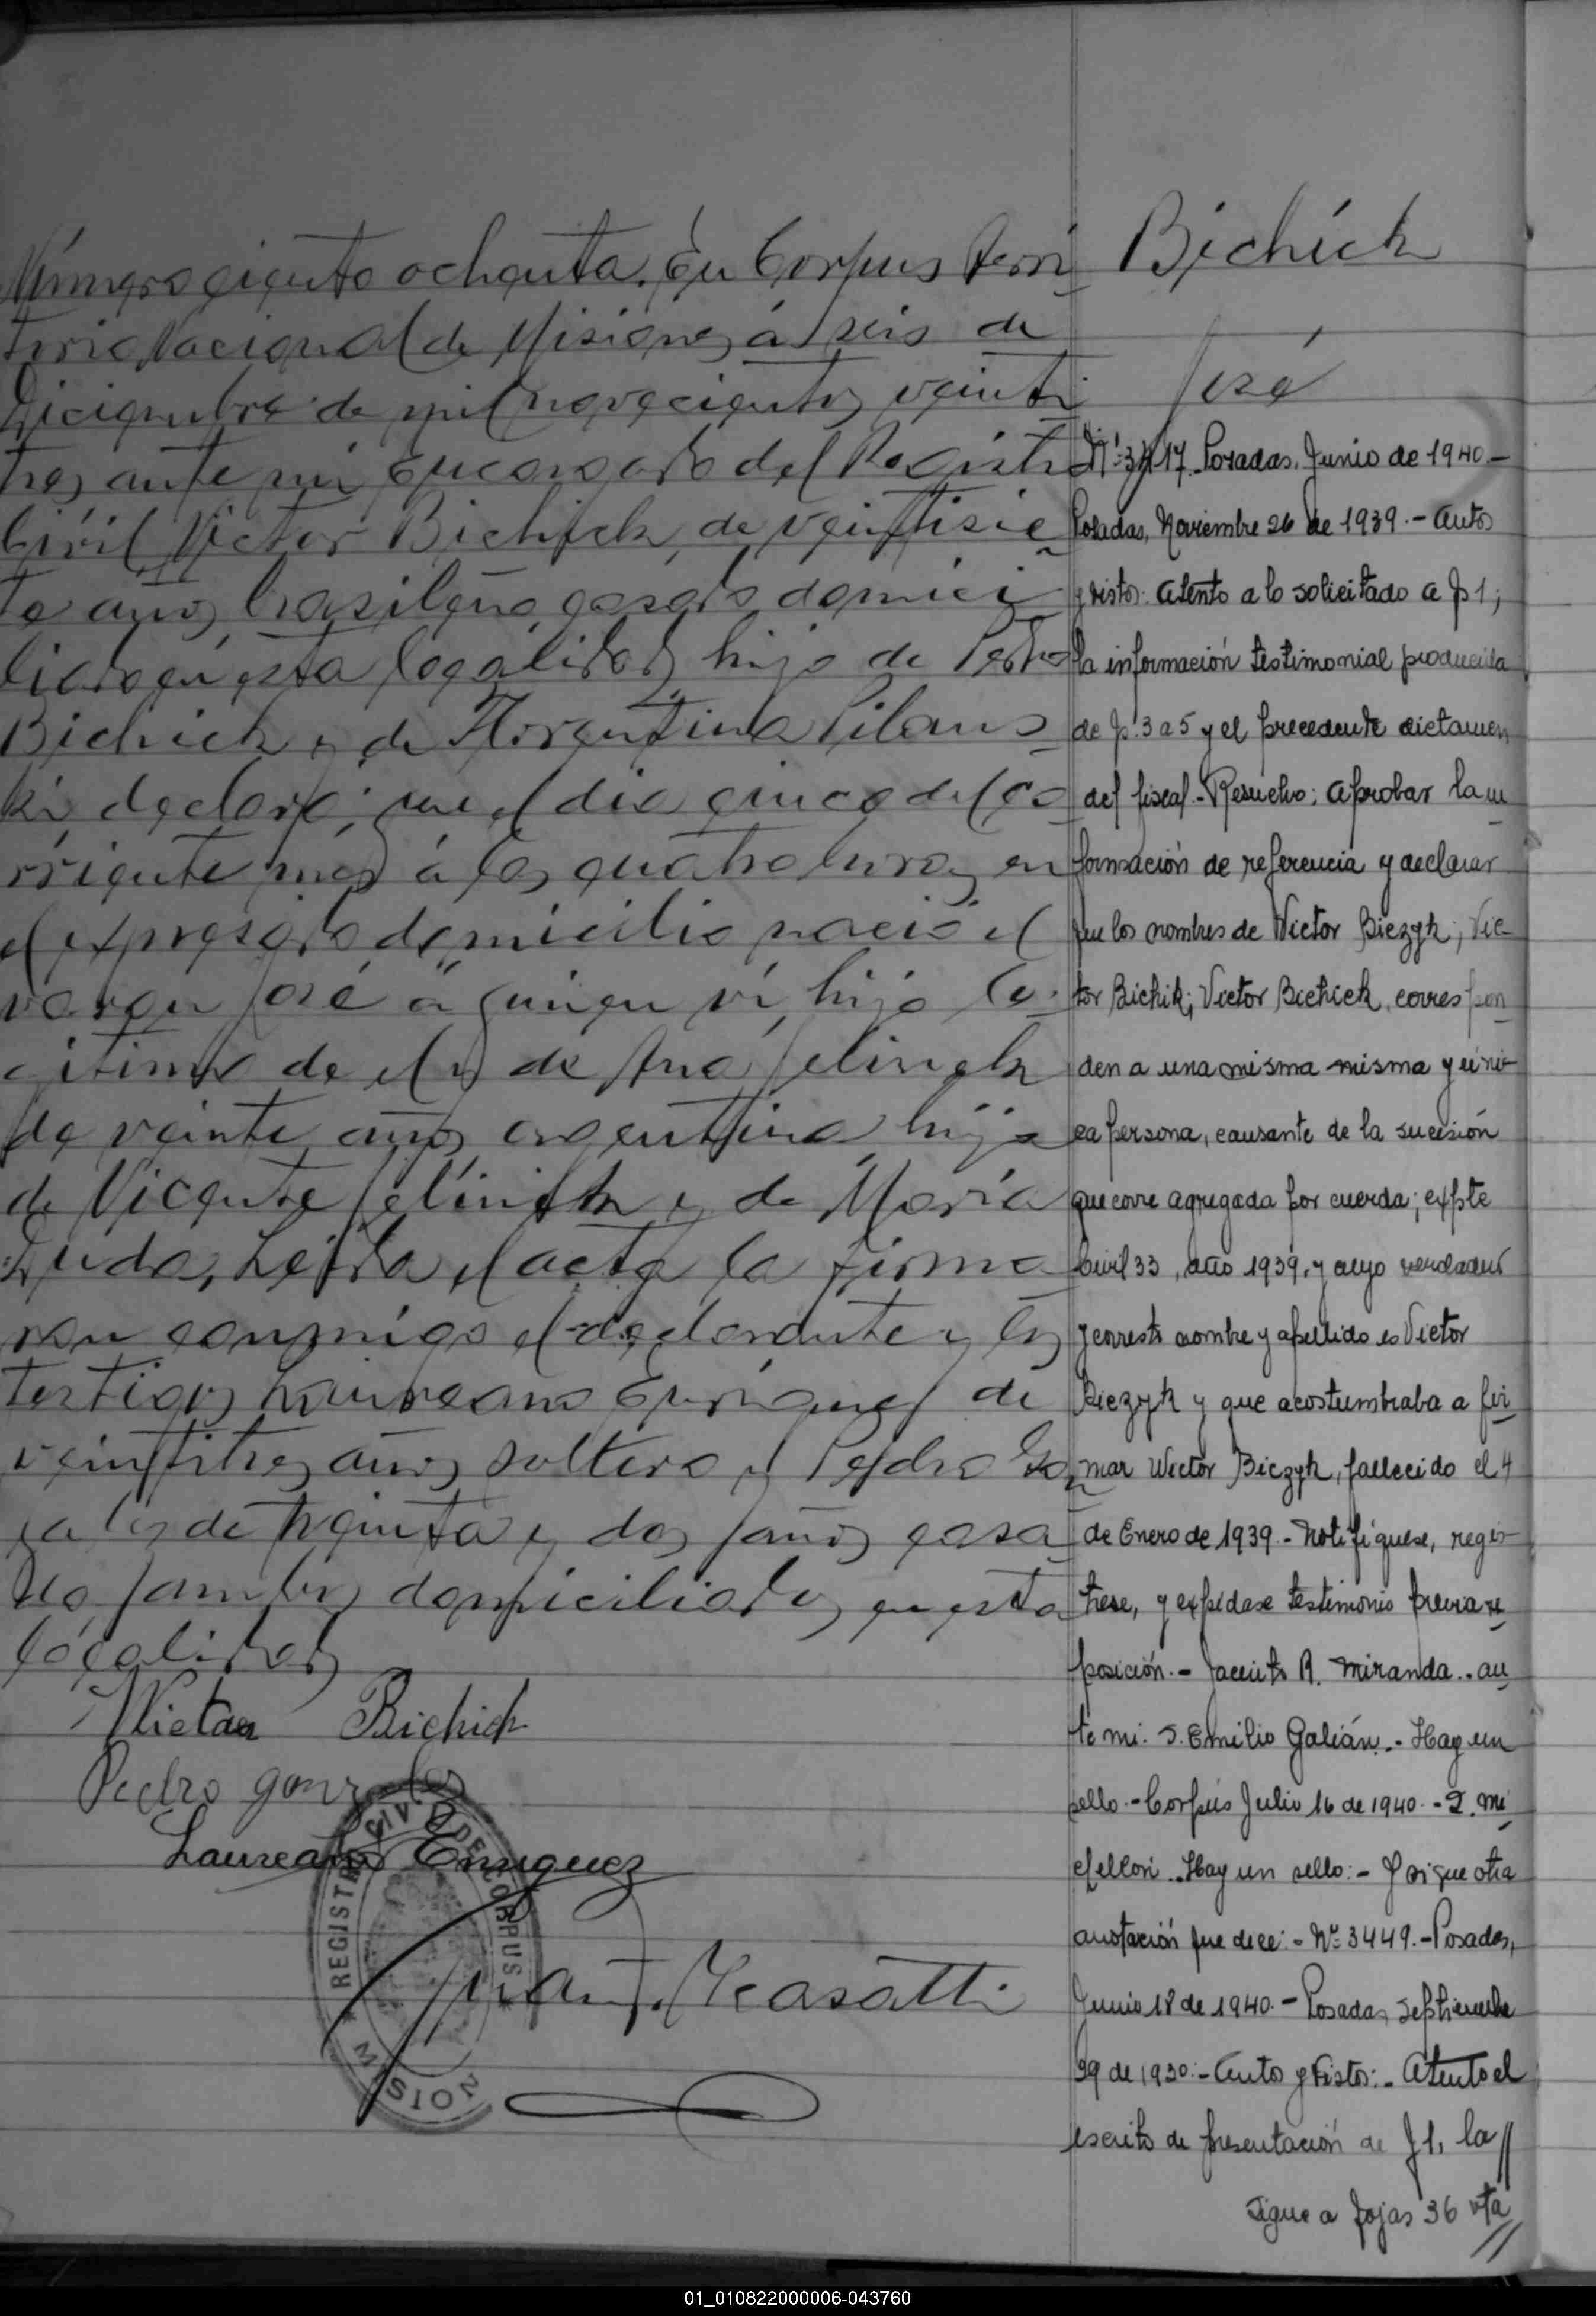 Número ciento ochenta. En Corpus Terri
torio Nacional de Misiones á seis de
Diciembre de mil novecientos veinti
tres ante mi Encargado del Registro
Civil, Victor Bichick, de veintisie
te años, brasileño, casado, domici
liado en esta localidad, hijo de Pedro
Bichick y de Florentina Pilaus
ki declaró; que el dia cinco del co
rriente mes á las cuatro horas en
el expresado domicilio nació el
varon José á quien vi, hijo le
gitimo de el y de Ana Jelinek
de veinte años argentina hija
de Vicente Jelinek y de Maria
Duda, Leida el acta la firma
ron conmigo el declarante y los
testigos Laureano Enriquez de
veintitres años soltero y Pedro Gon
zales de treinta y dos años casa
do, ambos domiciliados en esta
localidad
Wictor Bichick
Pedro gonzales
Laureano Enriquez
REGISTRO CIVIL DE CORPUS
MISIONES
Bichick
José
Posadas, Junio de 1940.-
Posadas, Noviembre 26 de 1939.- Autos
y vistos: Atento a lo solicitado a f 1;
la información testimonial producida
de f. 3 a 5 y el precedente dictamen
del fiscal.- Resuelvo; Aprobar la in
formación de referencia y declarar
que los nombres de Victor Biezyk; Vic-
tor Bichik; Victor Bichick, correspon
den a una misma misma y úni-
ca persona, causante de la sucesión
que corre agregada por cuerda; expte
Civil 33, año 1939, y cuyo verdadero
y correcto nombre y apellido es Victor
Biezyk y que acostumbraba a fir
mar Wictor Biezyk, fallecido el 4
de Enero de 1939.- Notifíquese, regis-
trese, y expídase testimonio previa re
posición.- Jacinto R. Miranda.. an
te mi. S. Emilio Galián.- Hay un
sello.- Corpus Julio 16 de 1940.-
Hay un sello:- Y sigue otra
anotación que dice:- Nº 3449.- Posadas,
Junio 18 de 1940.- Posadas, Septiembre
29 de 1930:- Autos y Vistos:- Atento el
escrito de presentación de f 1, la //
Sigue a fojas 36 vta //
01_010822000006-043760